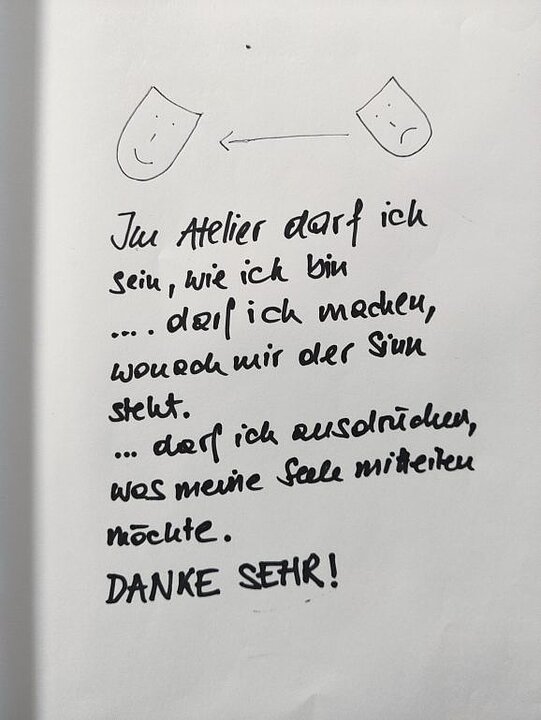 Im Atelier darf ich
sein, wie ich bin
.... darf ich machen,
wonach mir der Sinn
steht.
... darf ich ausdrücken,
was meine Seele mitteilen
möchte.
DANKE SEHR!